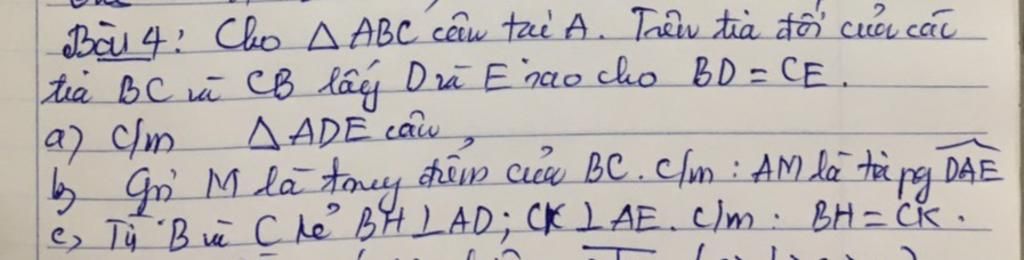 Bài 4: Cho △ABC cân tại A. Trên tia đối của các
tia BC và CB lấy D và E sao cho BD = CE.
a) C/m △ADE cân
b, Gọi M là trung điểm của BC. C/m: AM là tia pg DAE
c, Từ B và C kẻ BH ⊥ AD; CK ⊥ AE. C/m: BH = CK.